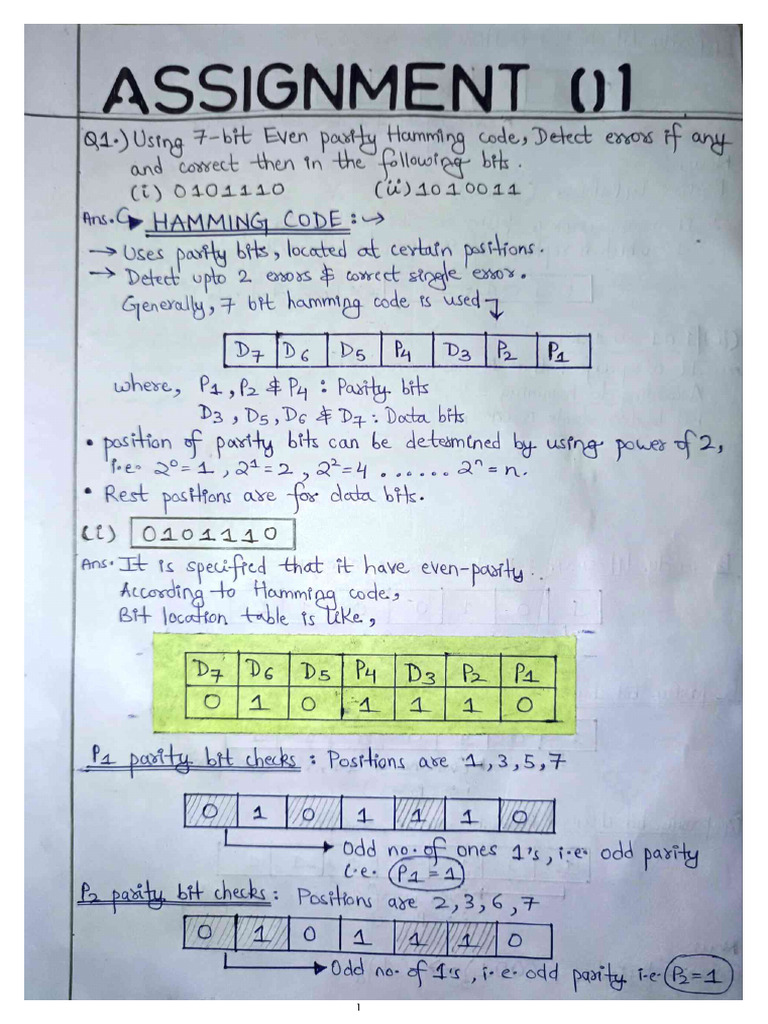 ASSIGNMENT 01
Q1.) Using 7-bit Even parity Hamming code, Detect errors if any
and correct then in the following bits.
(i) 0101110 (ii) 1010011
Ans. HAMMING CODE :→
→ Uses parity bits, located at certain positions.
→ Detect upto 2 errors & correct single error.
Generally, 7 bit hamming code is used
D7 D6 D5 P4 D3 P2 P1
where, P1, P2 & P4 : Parity bits
D3, D5, D6 & D7 : Data bits
• position of parity bits can be determined by using power of 2,
i.e. 2⁰=1, 2¹=2, 2²=4 ...... 2ⁿ=n.
• Rest positions are for data bits.
(i) 0101110
Ans. It is specified that it have even-parity.
According to Hamming code,
Bit location table is like,
D7 D6 D5 P4 D3 P2 P1
0 1 0 1 1 1 0
P1 parity bit checks : Positions are 1,3,5,7
0 1 0 1 1 1 0
Odd no. of ones 1's, i.e. odd parity
i.e. P1=1
P2 parity bit checks : Positions are 2,3,6,7
0 1 0 1 1 1 0
Odd no. of 1's, i.e. odd parity i.e. P2=1
1